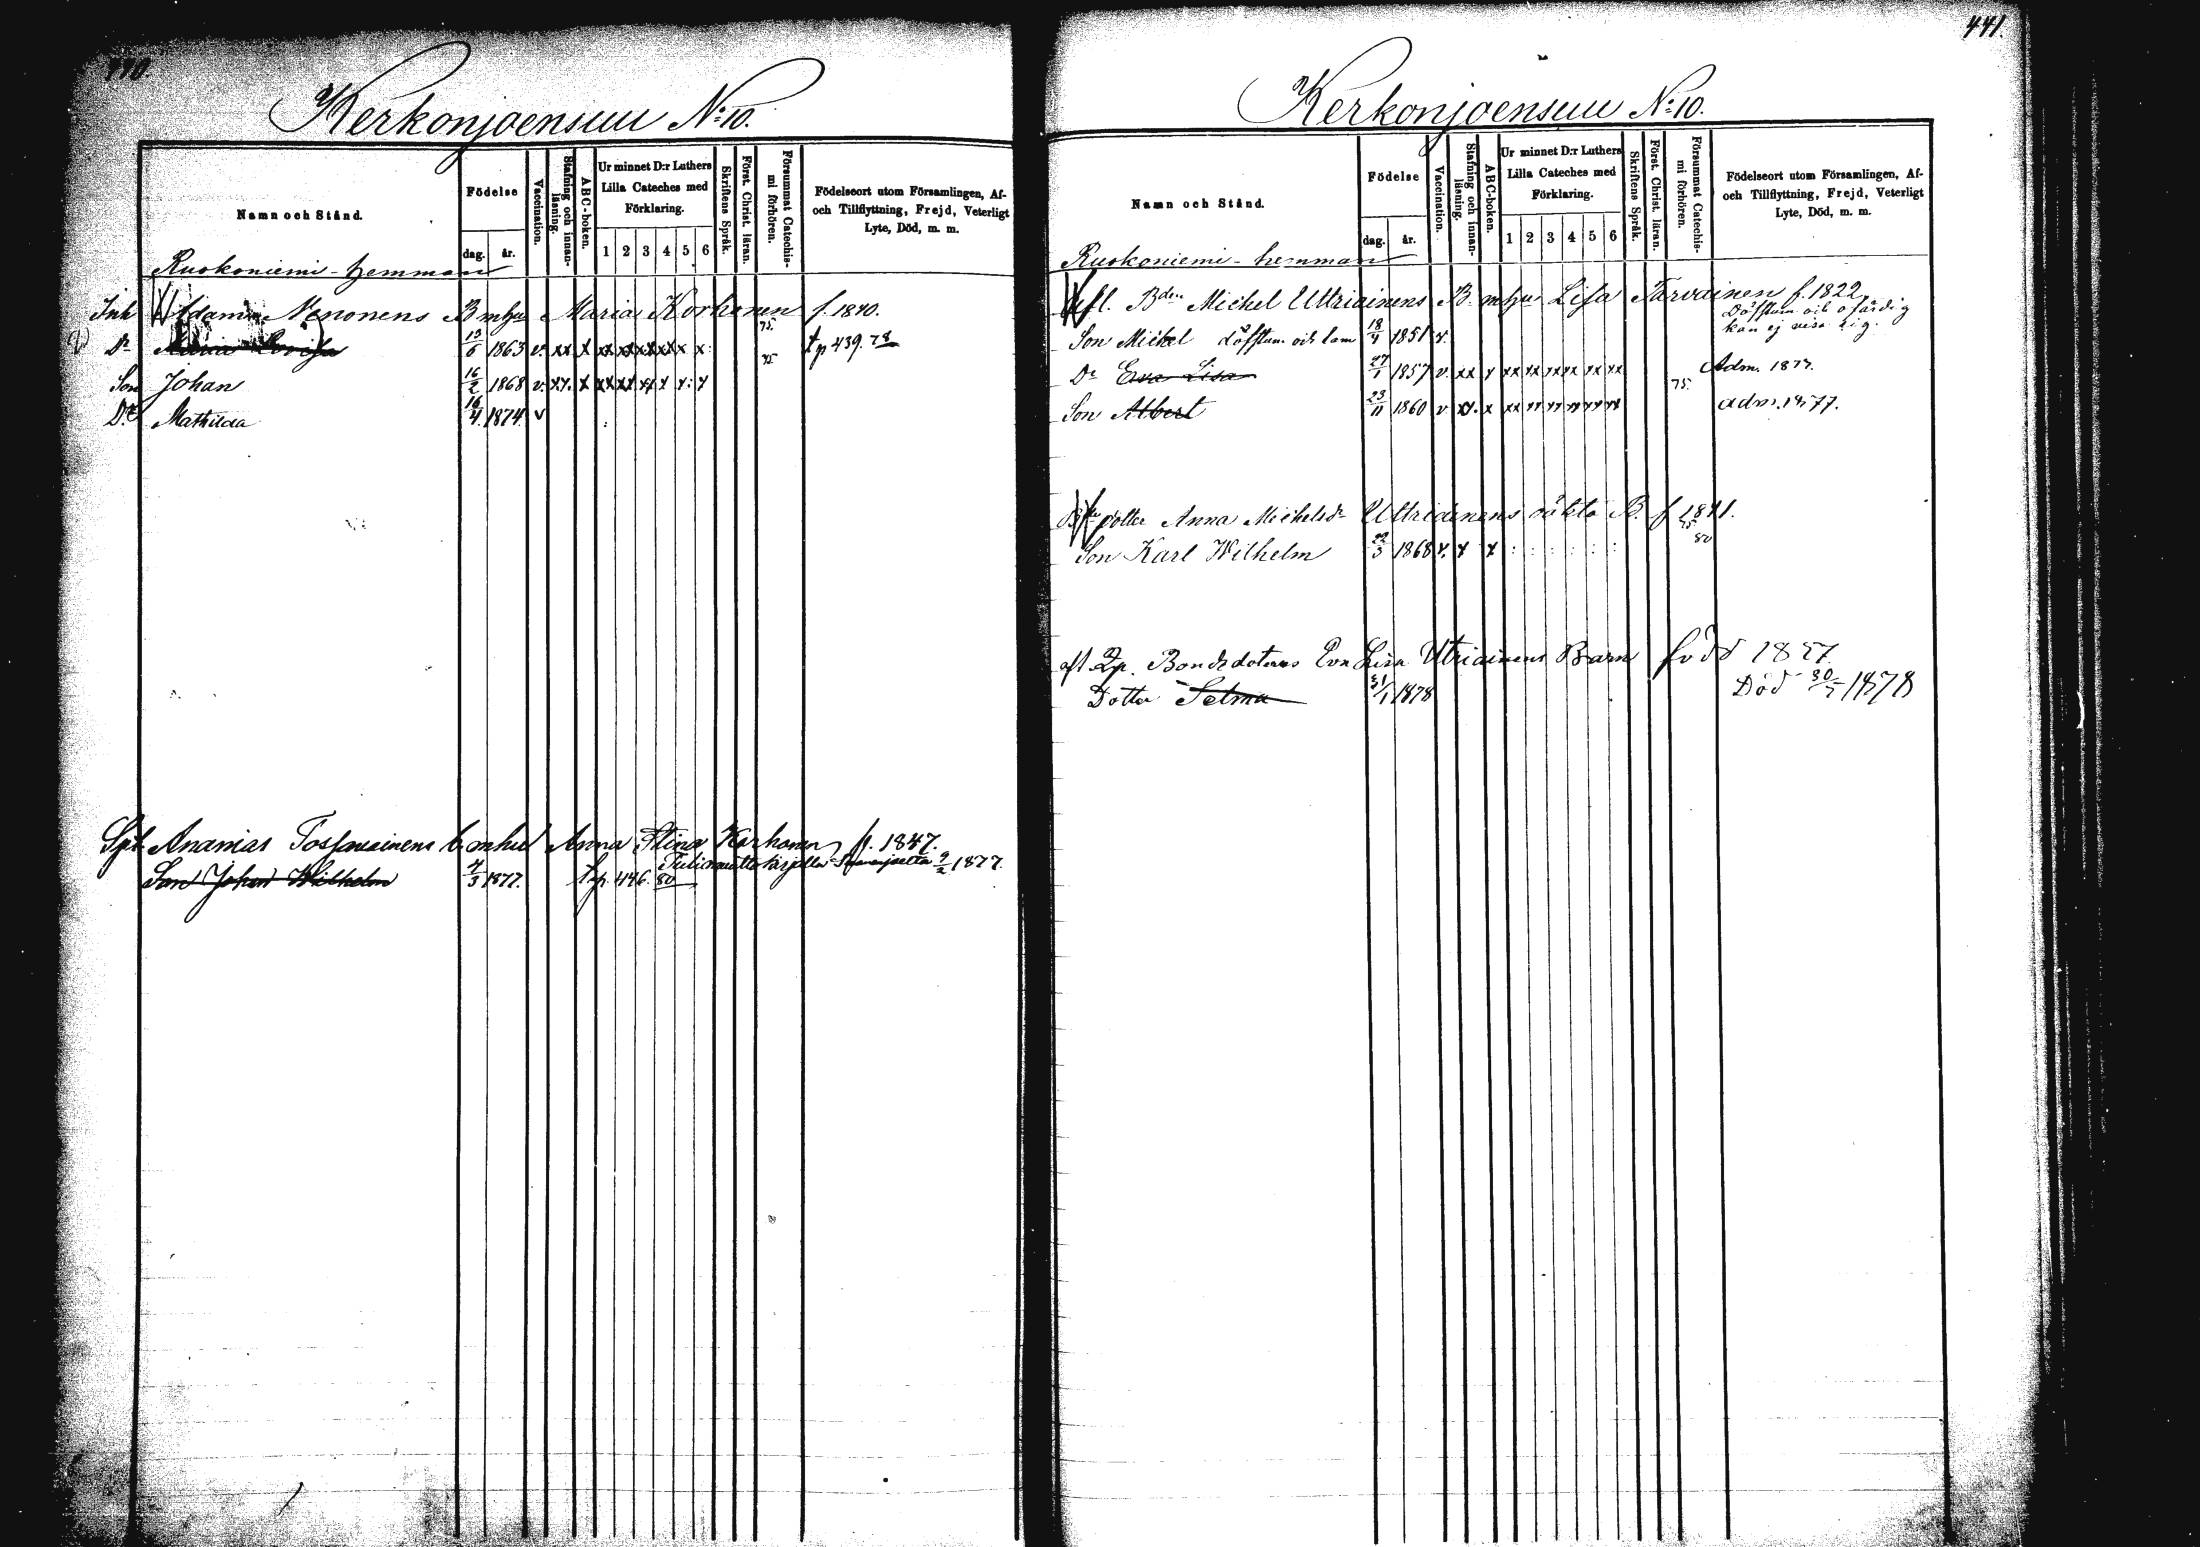 440.
Kerkonjoensuu N:10.
Namn och Stånd.
Födelse
dag. år.
Vaccination.
Stafning och innan-läsning.
ABC-boken.
Ur minnet D:r Luthers Lilla Cateches med Förklaring.
1 2 3 4 5 6
Skriftens Språk.
Först. Christ. läran.
Försummat Catechis-mi förhören.
Födelseort utom Församlingen, Af-
och Tillflyttning, Frejd, Veterligt
Lyte, Död, m. m.
Ruokoniemi-hemman
Inh Adam Nenonens B mhu Maria Korhonen f. 1840.
Dr Maria Lovisa 13/6 1863 v. xx x xx xx xx xx x x 75. tp 439. 78
Son Johan 16/2 1868 v. xx. x xx xx xx x x: x 75
Dr Mathilda 16/4 1874 v
Spt Ananias Tossavainens b. mhu Anna Stina Korhonen f. 1847.
9/2 1877.
Son Johan Wilhelm 4/3 1877. tp. 446. 80
441.
Kerkonjoensuu N:10.
Namn och Stånd.
Födelse
dag. år.
Vaccination.
Stafning och innan-läsning.
ABC-boken.
Ur minnet D:r Luthers Lilla Cateches med Förklaring.
1 2 3 4 5 6
Skriftens Språk.
Först. Christ. läran.
Försummat Catechis-mi förhören.
Födelseort utom Församlingen, Af-
och Tillflyttning, Frejd, Veterligt
Lyte, Död, m. m.
Ruokoniemi-hemman
afl. Bden Michel Uttriainens B. mhu Lisa Tarvainen f. 1822
Döfstum och ofärdig
kan ej visa sig.
Son Michel döfstum och lam 18/4 1851 v.
Dr Eva Lisa 27/1 1857 v. xx x xx xx xx xx xx xx 75. Adm. 1877.
Son Albert 23/11 1860 v xx. x xx xx xx xx xx xx adm. 1877.
dotter Anna Michelsdr Uttriainens oäkta B. f 1841.
75 80
Son Karl Wilhelm 22/3 1868 v. x x : : : : : :
aft Qp. Bondedoterns Eva Lisa Utriainens Barn född 1857
Dotter Selma 31/1 1878 Död 30/5 1878